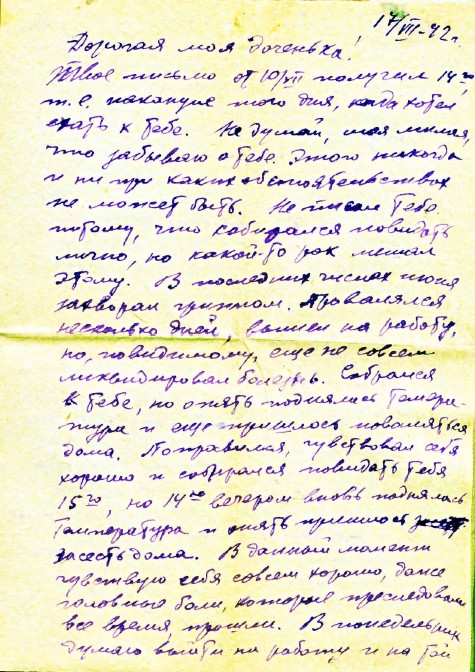 17/VII-42 г.
Дорогая моя доченька!
Твое письмо от 10/VII получил 14го,
т. е. накануне того дня, когда хотел
ехать к тебе. Не думай, моя милая,
что забываю о тебе. Этого никогда
и ни при каких обстоятельствах
не может быть. Не писал тебе
потому, что собирался повидать
лично, но какой-то рок мешал
этому. В последних числах июня
захворал гриппом. Провалялся
несколько дней, вышел на работу,
но, повидимому, еще не совсем
ликвидировал болезнь. Собрался
к тебе, но опять поднялась темпера-
тура и еще пришлось поваляться
дома. Поправился, чувствовал себя
хорошо и собирался повидать тебя
15го, но 14го вечером вновь поднялась
температура и опять пришлось
засесть дома. В данный момент
чувствую себя совсем хорошо, даже
головные боли, которые преследовали
все время, прошли. В понедельник
думаю выйти на работу и на той